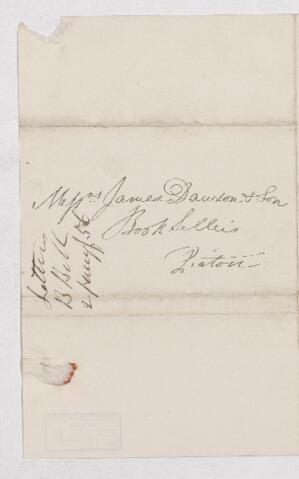 Messrs James Dawson & Son
Book Sellers
Pictou
Letter
B Bell